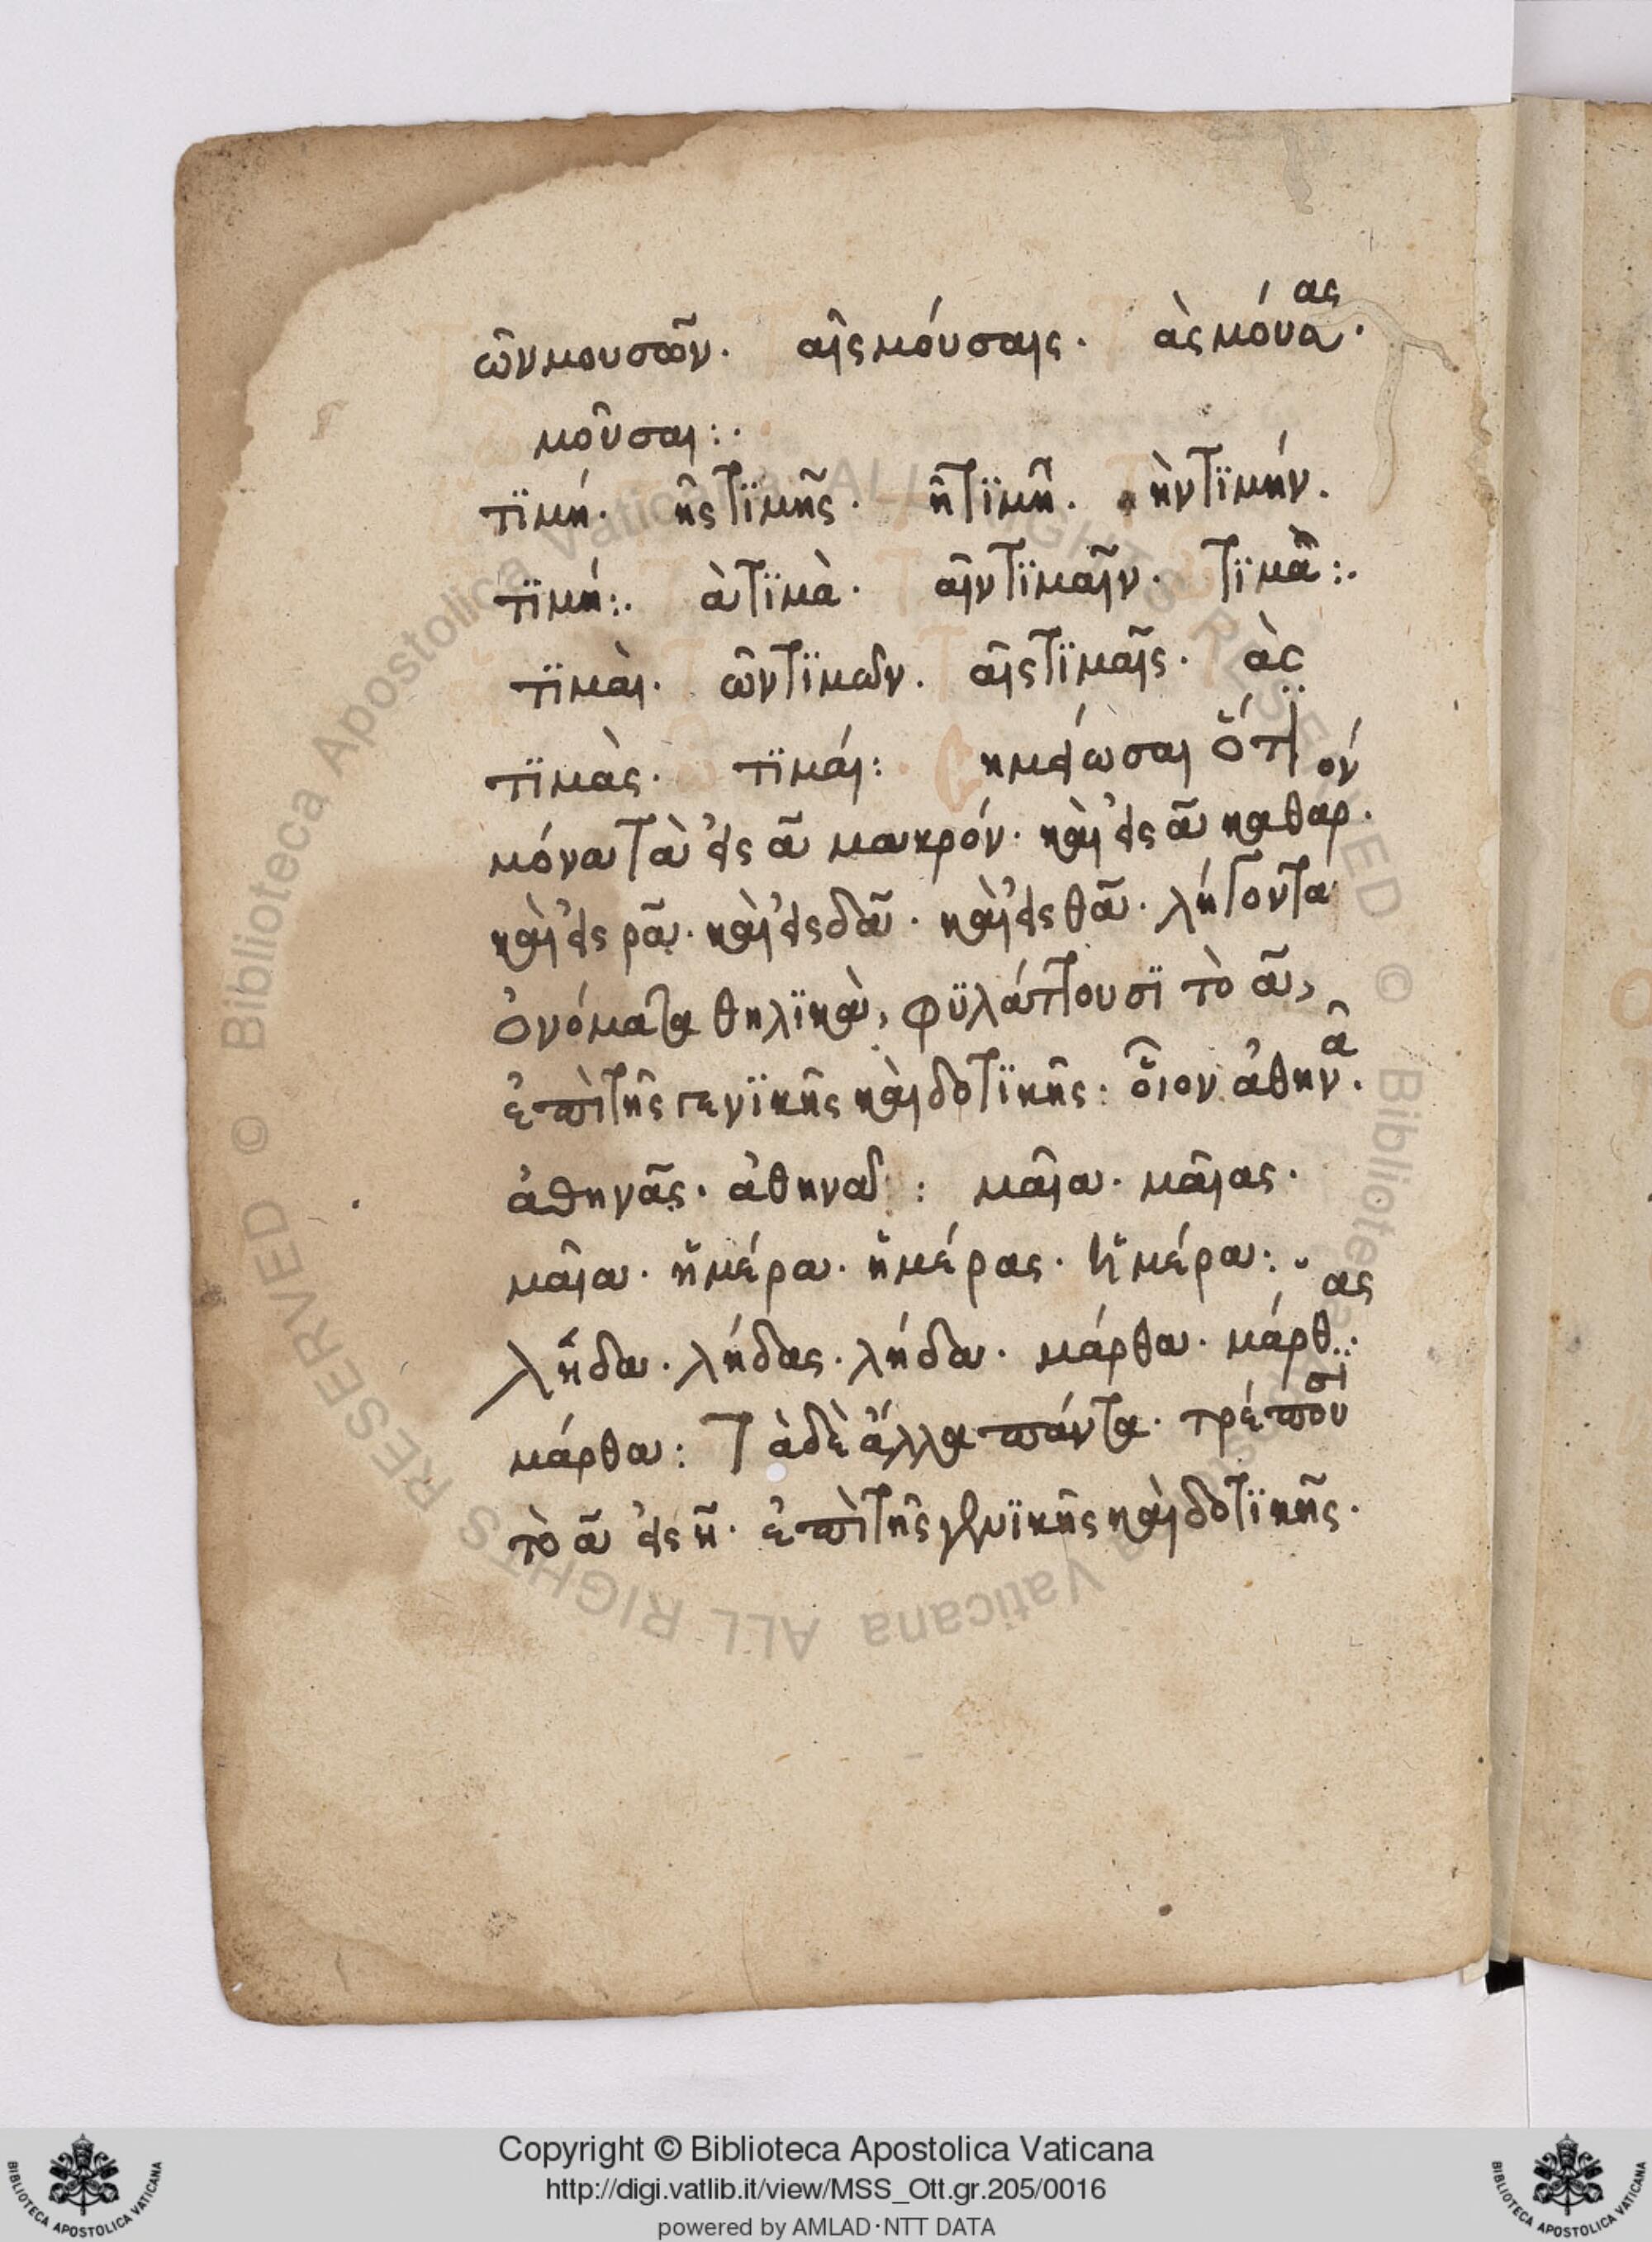 ῶν μουσῶν. αῖς μόυσαις. ὰς μόυας.
μοῦσαι:.
τϊμή. ῆς τϊμῆς. ῆ τϊμῆ. ὴν τϊμήν.
τϊμή:. ὰ τϊμὰ. αῖν τϊμαῖν. τϊμᾶ:.
τϊμὰι. ῶν τϊμῶν. αῖς τϊμαῖς. ὰς
τϊμὰς. τϊμάι: ημείωσαι ὅτϊ
μόνα τὰ ἐις α μακρόν. κὰι ἐις α καθαρόν.
κὰι ἐις ρα. κὰι ἐις δα. κὰι ἐις θα. λήγοντα
ὀνόματα θηλϊκὰ, φϋλάττουσϊ τὸ α,
ἐπὶ τῆς γενϊκῆς κὰι δοτϊκῆς: οἷον ἀθηνᾶ.
ἀθηνᾶς. ἀθηνᾶ: μαῖα. μαῖας.
μαῖα. ἡμέρα. ἡμέρας. ἡμέρα:.
λήδα. λήδας. λήδα. μάρθα. μάρθας:
μάρθα: Τὰ δὲ ἄλλα πάντα. τρέπουσι
τὸ α ἐις η. ἐπὶ τῆς γενϊκῆς κὰι δοτϊκῆς.
Copyright © Biblioteca Apostolica Vaticana
http://digi.vatlib.it/view/MSS_Ott.gr.205/0016
powered by AMLAD·NTT DATA
BIBLIOTECA APOSTOLICA VATICANA
BIBLIOTECA APOSTOLICA VATICANA
© Biblioteca Apostolica Vaticana ALL RIGHTS RESERVED © Biblioteca Apostolica Vaticana ALL RIGHTS RESERVED